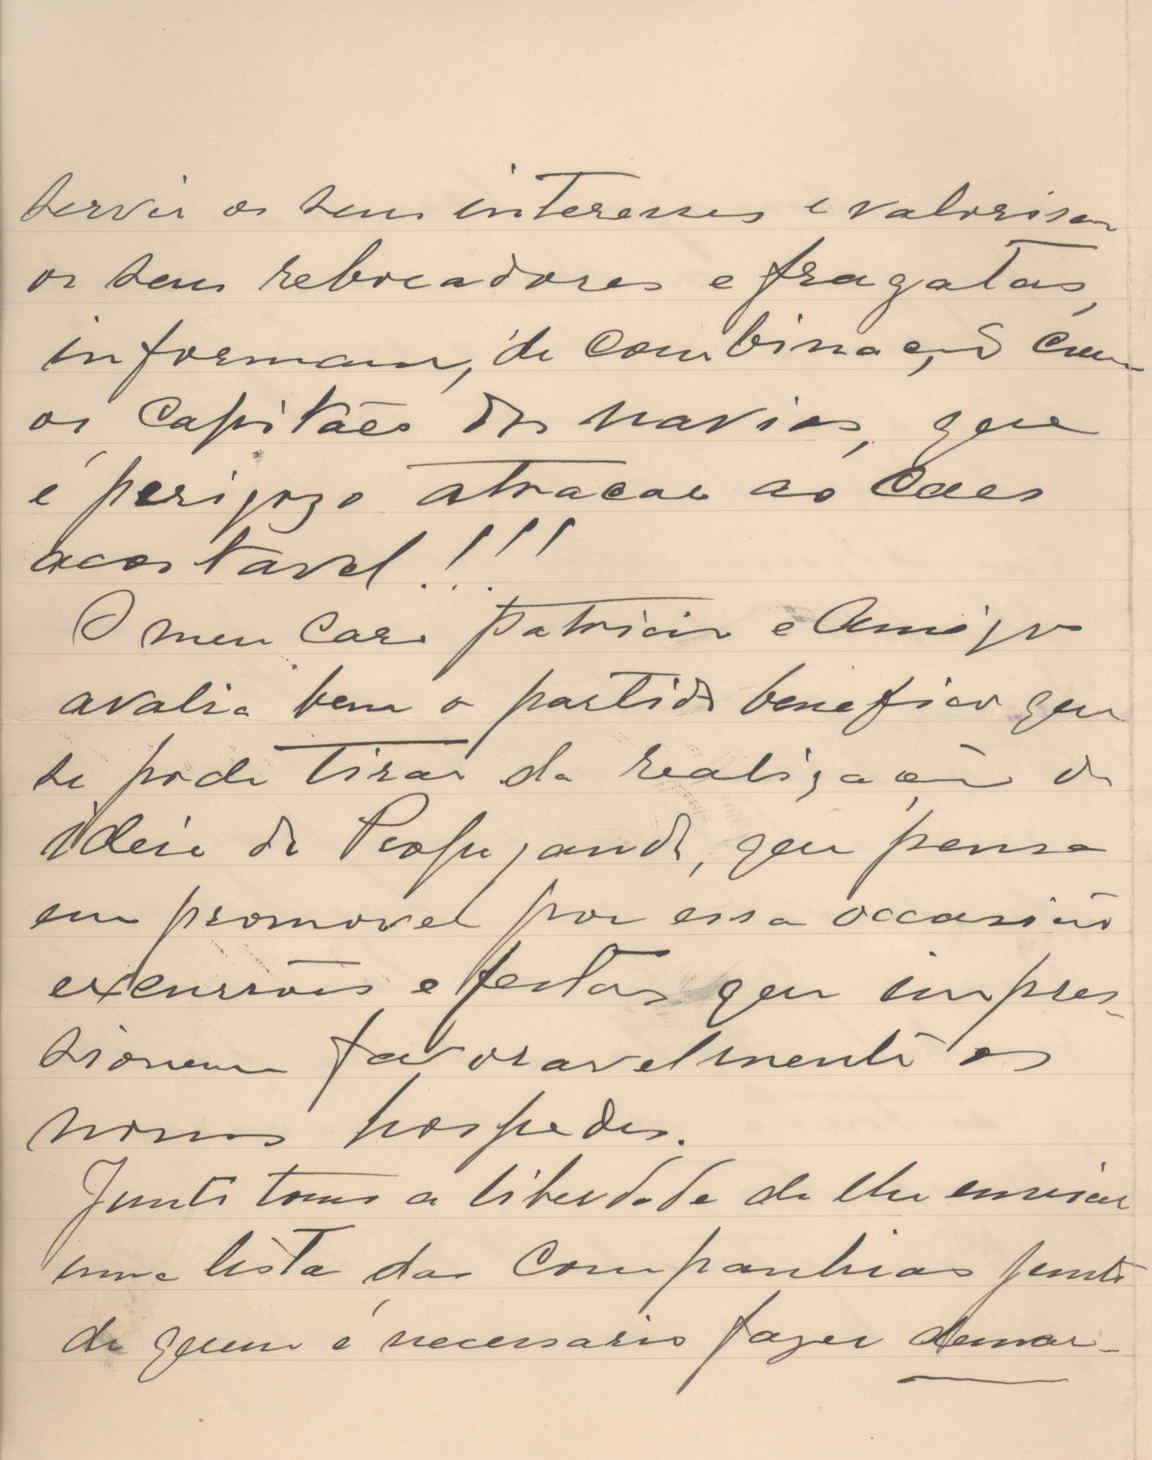 servir os seus interesses e valorisar
os seus rebocadores e fragatas,
informam, de combinação com
os capitães dos navios, que
é perigozo atracar ao Caes
acostavel!!!
O meu caro patricio e Amigo
avalia bem o partido benefico que
se pode tirar da realização da
ideia de Propaganda, que pensa
em promover por essa occasião
excursões e festas que impres-
sionem favoravelmente os
nossos hospedes.
Junto tomo a liberdade de lhe enviar
uma lista das Companhias junto
de quem é necessario fazer demar-